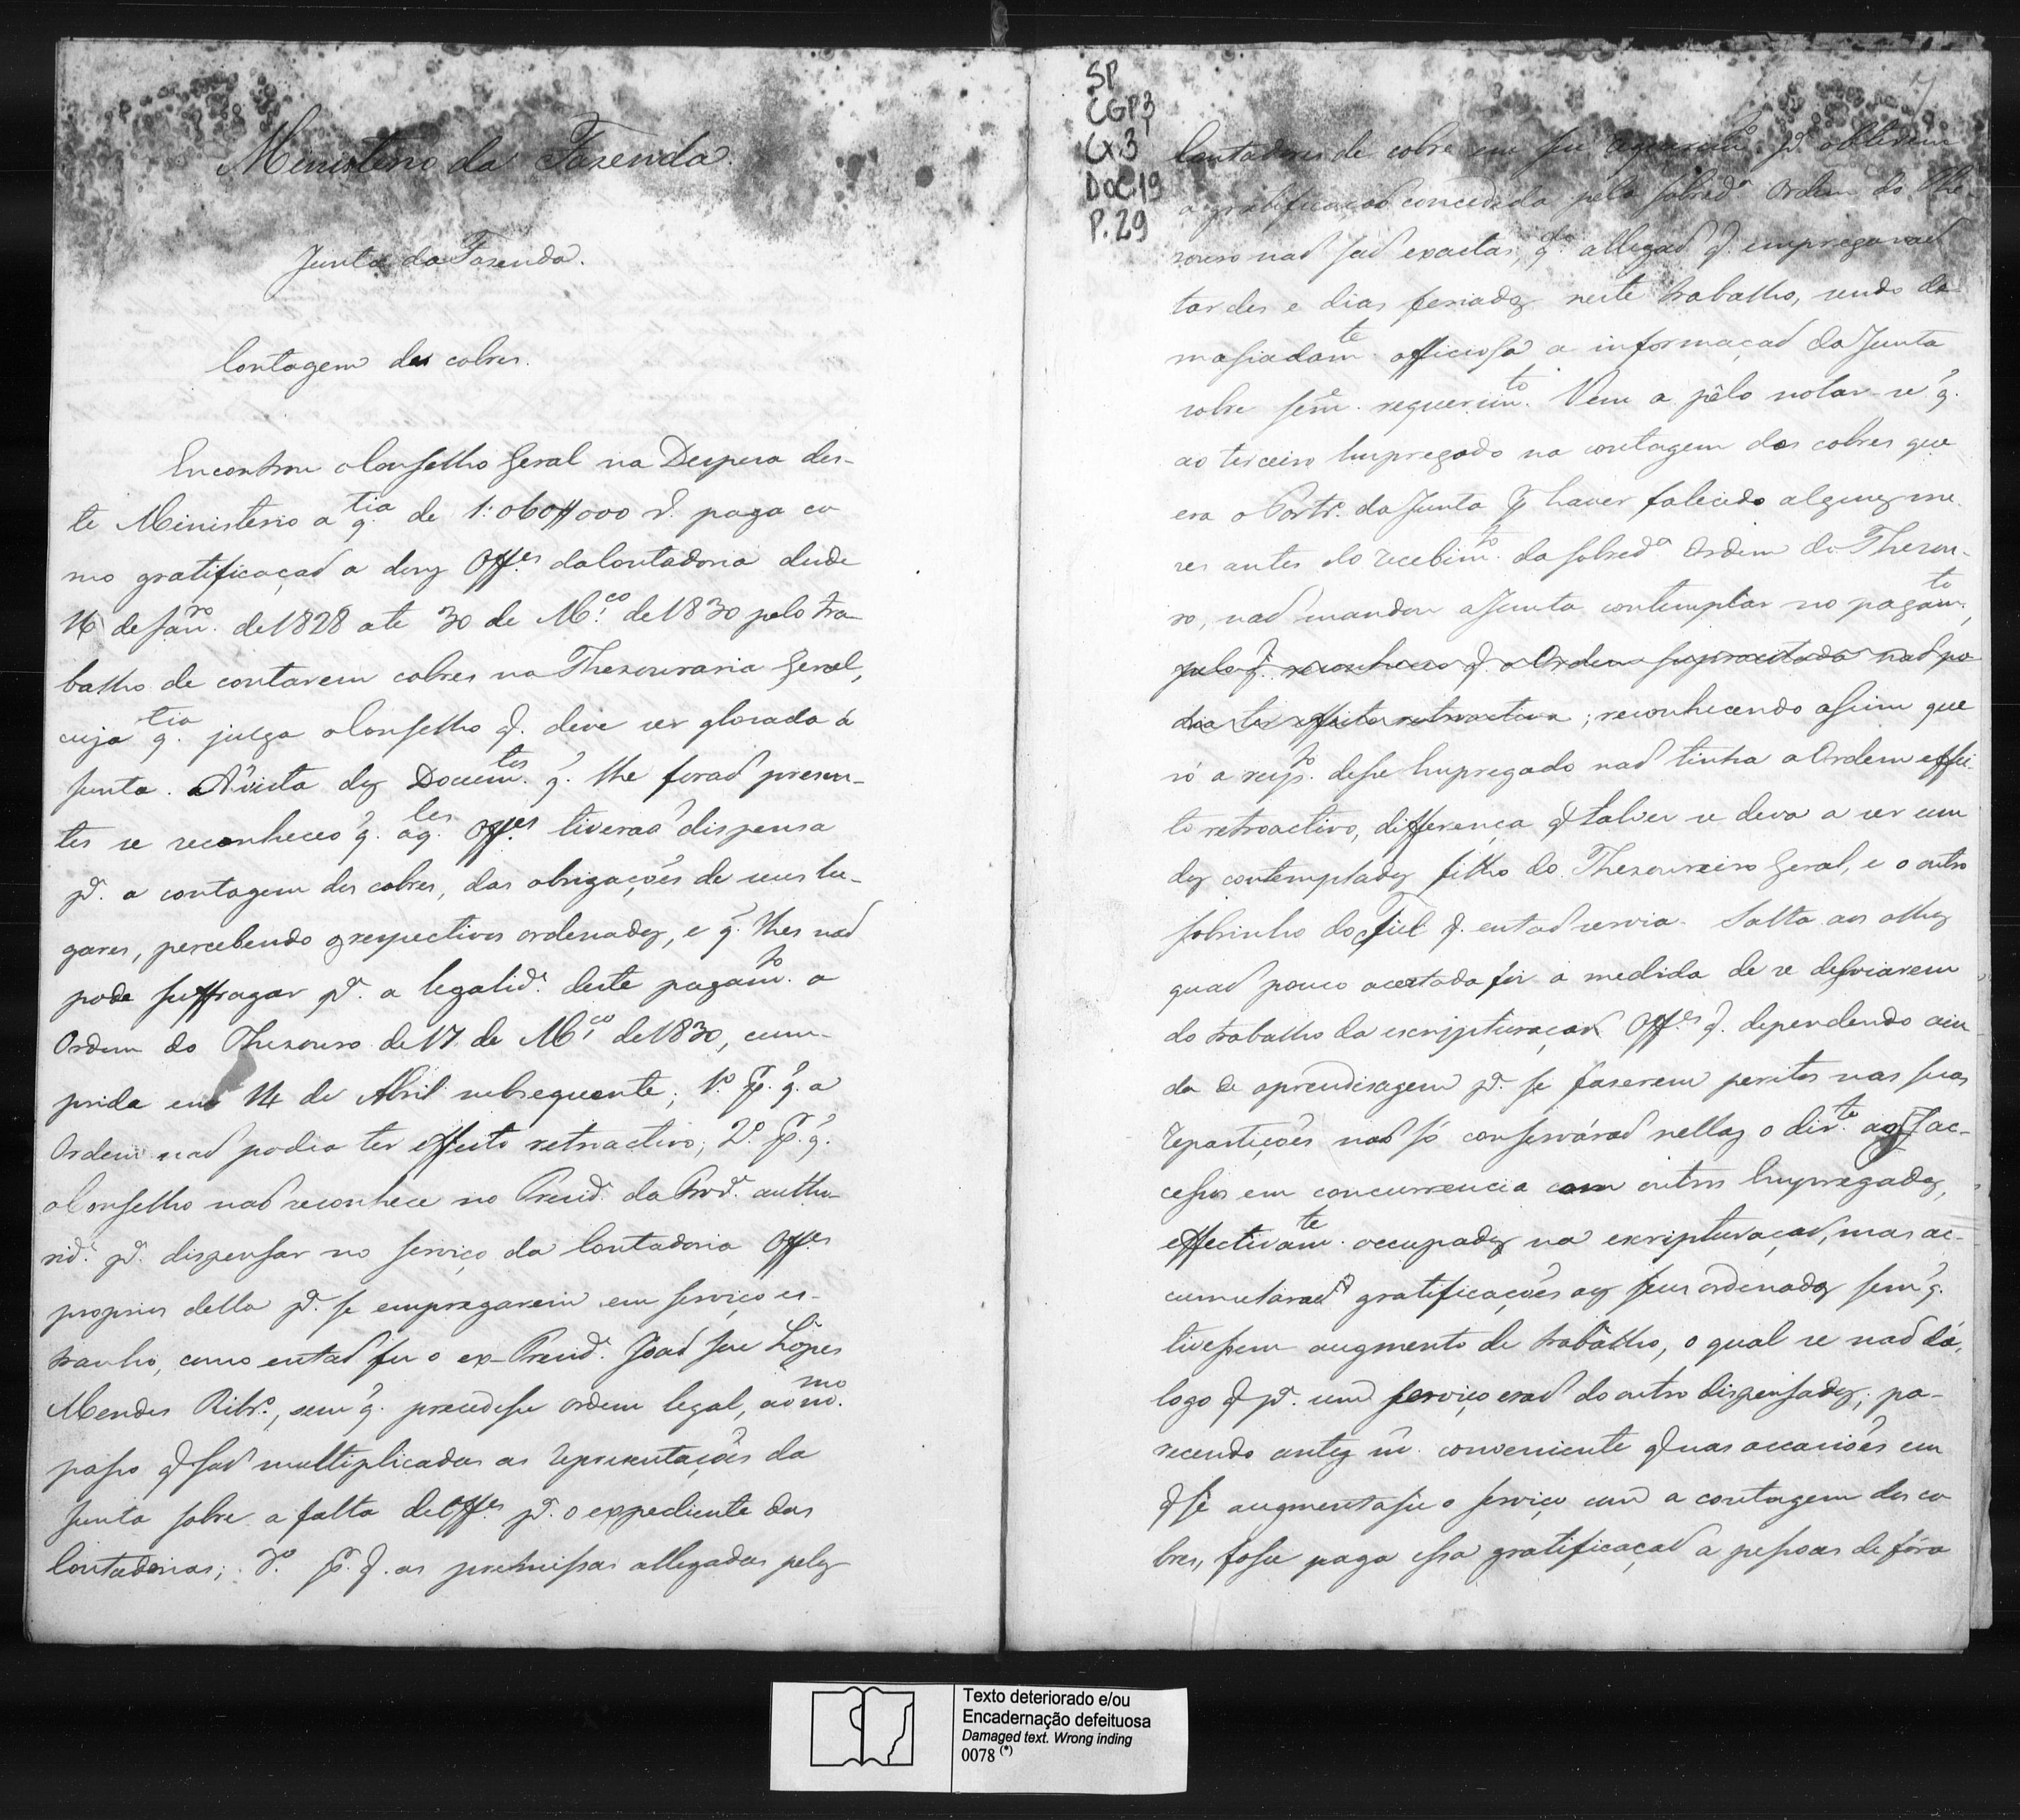 Ministerio da Fazenda.
Junta da Fazenda.
Contagem dos cobres.
Encontrou o Conselho Geral na Despesa des-
te Ministerio a q.tia de 1:060$000 r. paga co
mo gratificação a dous Off.es da Contadoria desde
14 de Janr.o de 1828 ate 30 de M.ço de 1830 pelo tra-
balho de contarem cobres na Thesouraria Geral,
cuja q.tia julga o Conselho q. deve ser glosada á
Junta. Á vista dos Docum.tos q. lhe forão presen-
tes se reconheceo q. aq.les Off.es tiverão dispensa
p.a a contagem dos cobres, das obrigações de seus lu-
gares, percebendo os respectivos ordenados, e q. lhes não
pode suffragar p.a a legalid.e deste pagam.to a
Ordem do Thesouro de 17 de M.ço de 1830, cum-
prida em 14 de Abril subsequente; 1.o P. q. a
Ordem não podia ter effeito retroactivo; 2.o P. q.
o Conselho não reconhece no Presid.e da Prov.a autho-
rid.e p.a dispensar no serviço da Contadoria Off.es
proprios della p.a se empregarem em serviço es-
tranho, como então fez o ex-Presid.e João José Lopes
Mendes Ribr.o, sem q. precedesse ordem legal, ao m.mo
passo q são multiplicadas as representações da
Junta sobre a falta de Off.es p.a o expediente das
Contadorias; 3.o P. q. as premissas allegadas pelos
SP
CGP3
CX.3
DOC.19
P.29
7
Contadores de cobre em seu requerim.to p.a obterem
a gratificação concedida pela sobred.a Ordem do The-
souro não são exactas, q.do allegão q. empregavão
tardes e dias feriados neste trabalho, sendo de-
masiadam.te officiosa a informação da Junta
sobre sem.e requerim.to. Vem a pêlo notar-se q.
ao terceiro Empregado na contagem dos cobres que
era o Portr.o da Junta P haver falecido alguns me-
zes antes do recebim.to da sobred.a Ordem do Thesou-
ro, não mandou a Junta contemplar no pagam.to,
pelo q. reconheceo q. a Ordem supracitada não po-
dia ter effeito retroactivo; reconhecendo assim que
só a resp.to desse Empregado não tinha a Ordem effei-
to retroactivo, differença q talvez se deva a ser um
dos contemplados filho do Thesoureiro Geral, e o outro
sobrinho do Fiel q. então servia. Salta aos olhos
quão pouco acertada foi a medida de se desviarem
do trabalho da escripturação Off.es q. dependendo ain-
da de aprendisagem p.a se fazerem peritos nas suas
repartições não só conservárão nellas o dir.to aos ac-
cessos em concurrencia com outros Empregados,
effectivam.te occupados na escripturação, mas ac-
cumulárão gratificações aos seus ordenados sem q.
tivessem augmento de trabalho, o qual se não dá,
logo q p.a um serviço erão do outro dispensados; pa-
recendo antes m. conveniente q nas occasiões em
q se augmentasse o serviço com a contagem dos co-
bres, fosse paga essa gratificação a pessoas de fóra
Texto deteriorado e/ou
Encadernação defeituosa
Damaged text. Wrong inding
0078 (*)